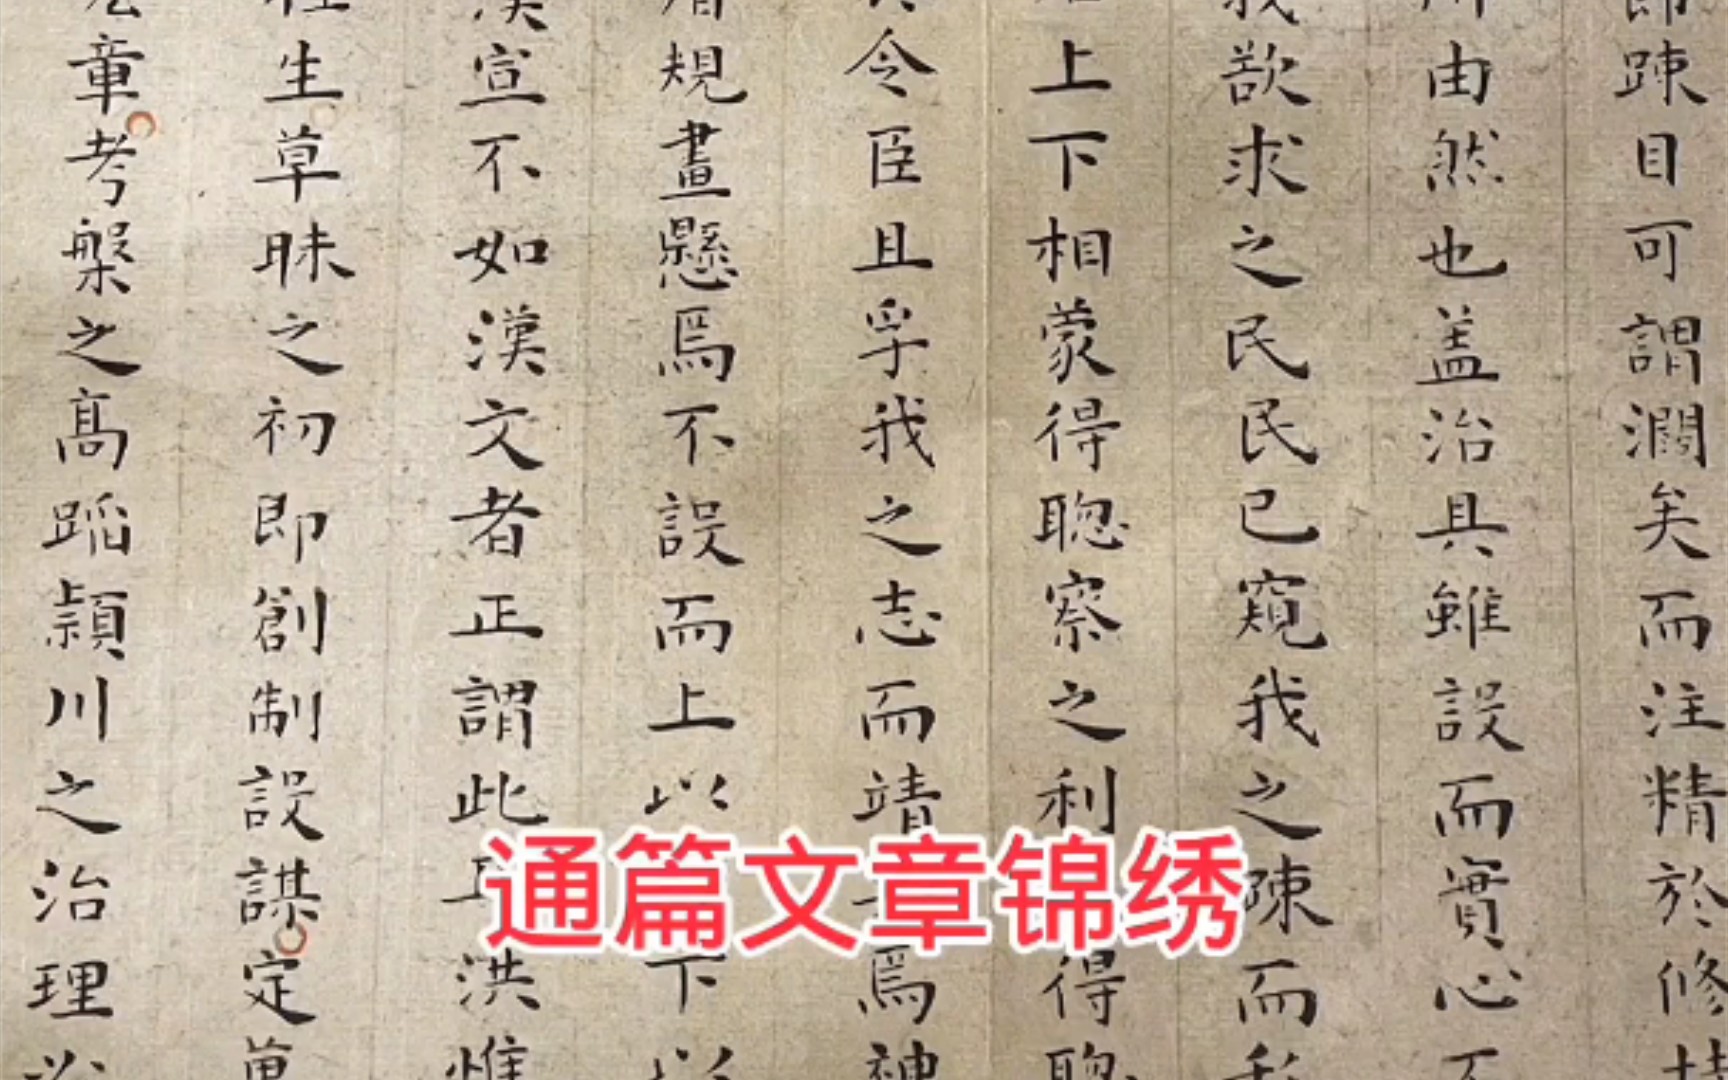 踈目可謂濶矣而注精於修
由然也盖治具雖設而實心不
我欲求之民民已窺我之陳而
上下相蒙得聰察之利 得聰
令臣且孚我之志而靖 焉神
規畫懸焉不誤而上以 下以
宣不如漢文者正謂此 洪惟
生草昧之初即創制設謀定萬
章考槃之高蹈潁川之治理
通篇文章锦绣